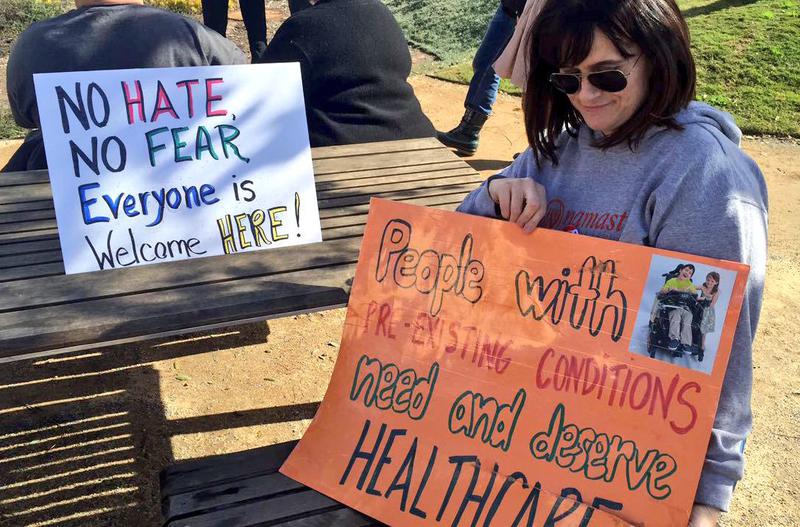 NO HATE,
NO FEAR
Everyone is
Welcome HERE!
namast
People with
PRE-EXISTING CONDITIONS
need and deserve
HEALTHCARE